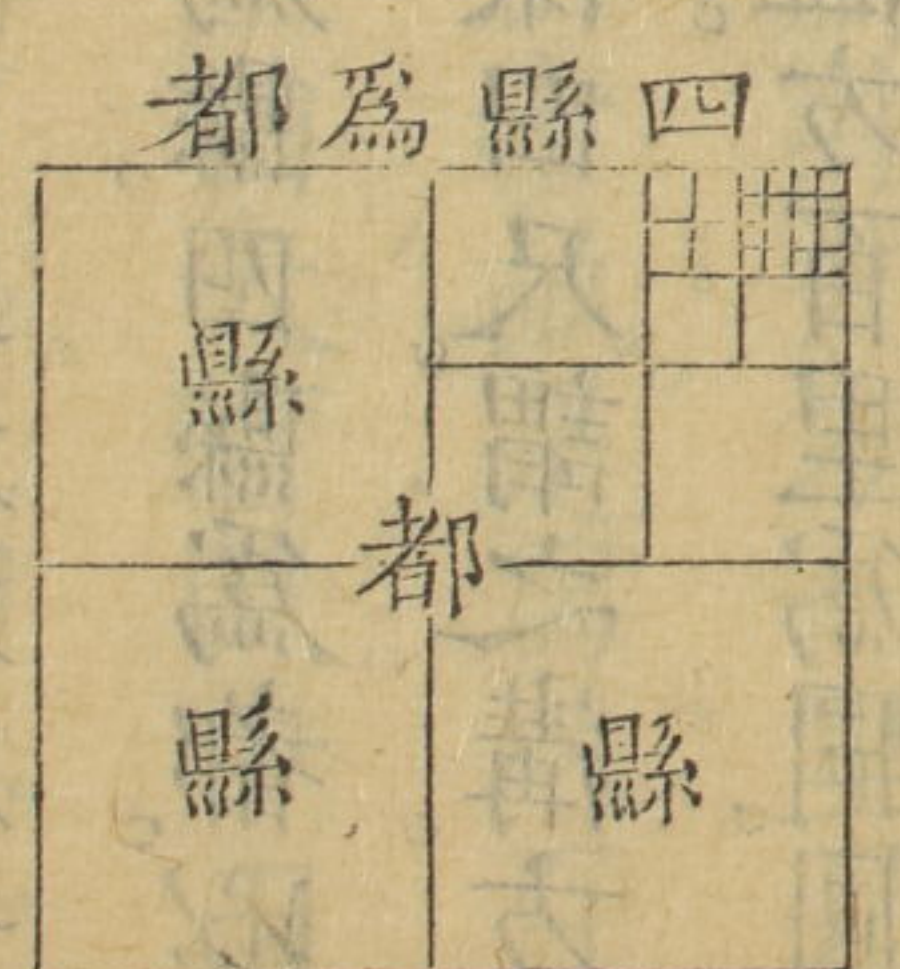 四縣爲都
縣
都
縣
縣